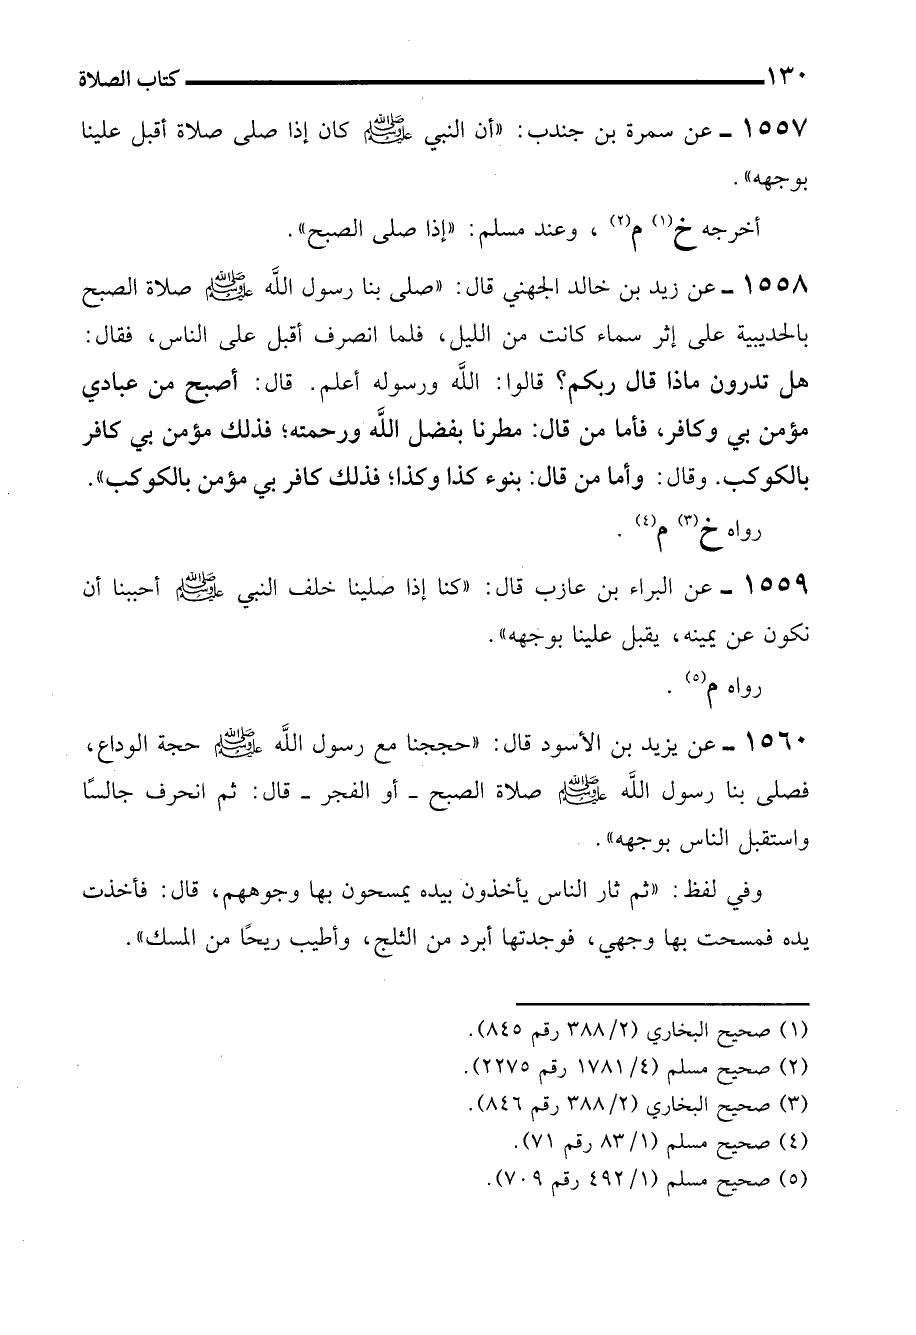 ١٣٠ كتاب الصلاة
١٥٥٧ ـ عن سمرة بن جندب: «أن النبي ﷺ كان إذا صلى صلاة أقبل علينا
بوجهه».
أخرجه خ(١) م(٢) ، وعند مسلم: «إذا صلى الصبح».
١٥٥٨ ـ عن زيد بن خالد الجهني قال: «صلى بنا رسول اللَّه ﷺ صلاة الصبح
بالحديبية على إثر سماء كانت من الليل، فلما انصرف أقبل على الناس، فقال:
هل تدرون ماذا قال ربكم؟ قالوا: اللَّه ورسوله أعلم. قال: أصبح من عبادي
مؤمن بي وكافر، فأما من قال: مطرنا بفضل اللَّه ورحمته؛ فذلك مؤمن بي كافر
بالكوكب. وقال: وأما من قال: بنوء كذا وكذا؛ فذلك كافر بي مؤمن بالكوكب».
رواه خ(٣) م(٤) .
١٥٥٩ ـ عن البراء بن عازب قال: «كنا إذا صلينا خلف النبي ﷺ أحببنا أن
نكون عن يمينه، يقبل علينا بوجهه».
رواه م(٥) .
١٥٦٠ ـ عن يزيد بن الأسود قال: «حججنا مع رسول اللَّه ﷺ حجة الوداع،
فصلى بنا رسول اللَّه ﷺ صلاة الصبح ـ أو الفجر ـ قال: ثم انحرف جالسًا
واستقبل الناس بوجهه».
وفي لفظ: «ثم ثار الناس يأخذون بيده يمسحون بها وجوههم، قال: فأخذت
يده فمسحت بها وجهي، فوجدتها أبرد من الثلج، وأطيب ريحًا من المسك».
(١) صحيح البخاري (٣٨٨/٢ رقم ٨٤٥).
(٢) صحيح مسلم (١٧٨١/٤ رقم ٢٢٧٥).
(٣) صحيح البخاري (٣٨٨/٢ رقم ٨٤٦).
(٤) صحيح مسلم (٨٣/١ رقم ٧١).
(٥) صحيح مسلم (٤٩٢/١ رقم ٧٠٩).